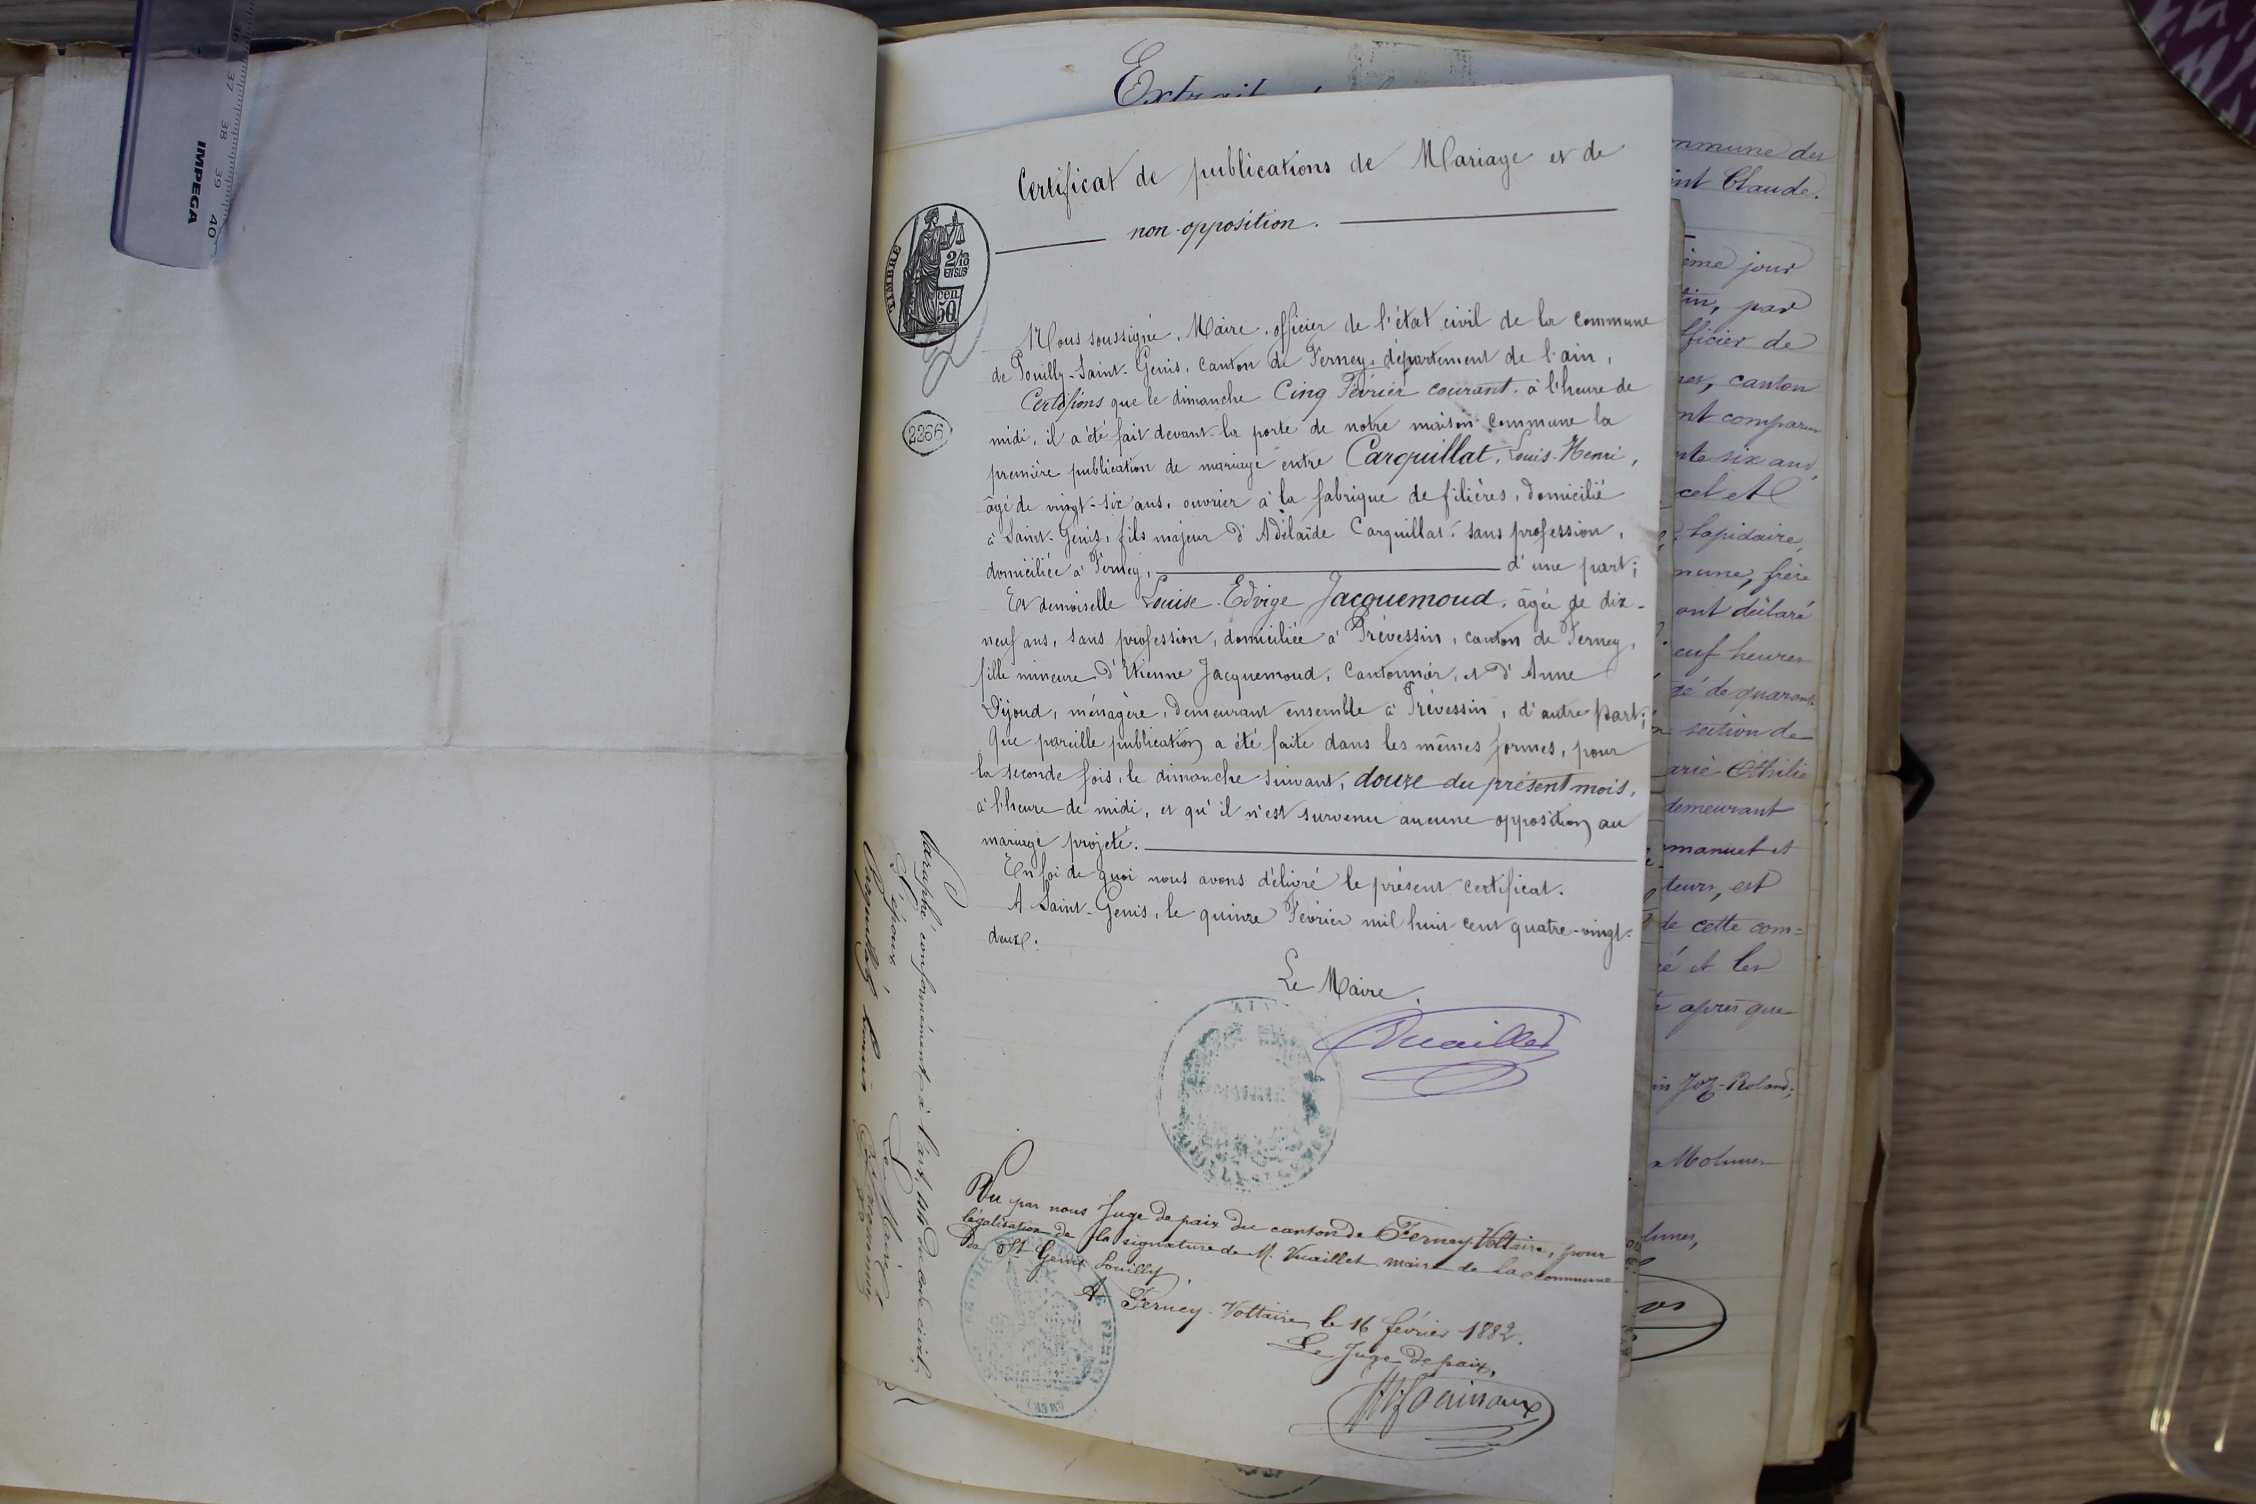 37
38
39
40
IMPEGA
Extrait
Certificat de publications de Mariage et de
non-opposition.
TIMBRE
2/10
EN SUS
cen.
50
2266
Nous soussigné, Maire, officier de l'état civil de la commune
de Pouilly-Saint-Genis, canton de Ferney, département de l'ain,
Certifions que le dimanche Cinq Février courant, à l'heure de
midi, il a été fait devant la porte de notre maison commune la
première publication de mariage entre Carquillat, Louis-Henri,
âgé de vingt-six ans, ouvrier à la fabrique de filières, domicilié
à Saint-Genis, fils majeur d'Adélaïde Carquillat, sans profession,
domiciliée à Ferney, d'une part;
Et demoiselle Louise-Edvige Jacquemoud, âgée de dix-
neuf ans, sans profession, domiciliée à Prévessin, canton de Ferney,
fille mineure d'Etienne Jacquemoud, Cantonnier, et d'Anne
Dijoud, ménagère, demeurant ensemble à Prévessin, d'autre part;
Que pareille publication a été faite dans les mêmes formes, pour
la seconde fois, le dimanche suivant, douze du présent mois,
à l'heure de midi, et qu'il n'est survenu aucune opposition au
mariage projeté.
En foi de quoi nous avons délivré le présent certificat.
A Saint-Genis, le quinze Février mil huit cent quatre-vingt-
deux.
Le Maire.
Vuaillet
Vu par nous Juge de paix du canton de Ferney-Voltaire, pour
légalisation de la signature de M. Vuaillet maire de la commune
de St Genis Pouilly.
A Ferney-Voltaire, le 16 février 1882.
Le Juge de paix,
Paraphé conformément à l'art. du code civil
L'époux Le Maire
Carquillat Louis
mmune des
int Claude.
ème jour
tin, par
fficier de
res, canton
nt comparu
nte six ans
cel et
lapidaire,
mune, frère
ont déclaré
euf heures
gé de quarante
section de
arie Othilie
demeurant
manuel et
teurs, est
de cette com=
é et les
après que
Joz-Roland;
Molunes
lunes,